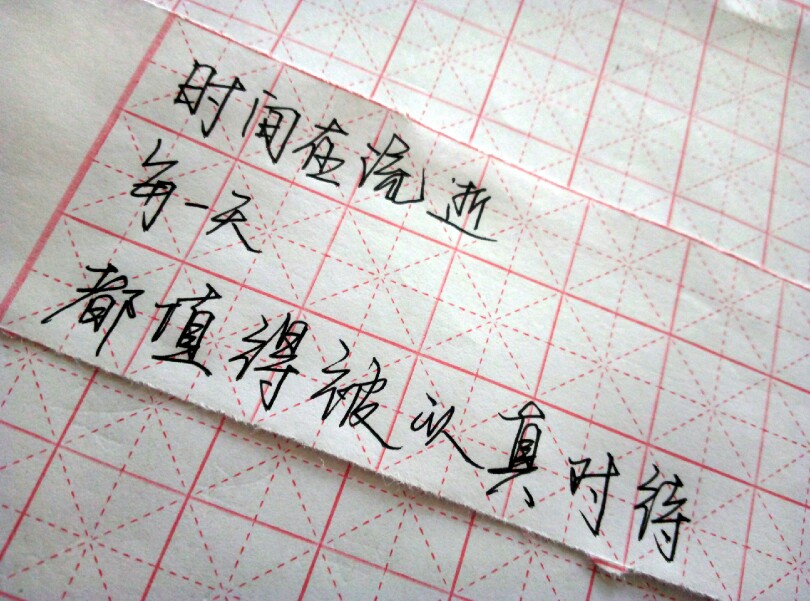 时间在流逝
每一天
都值得被认真对待